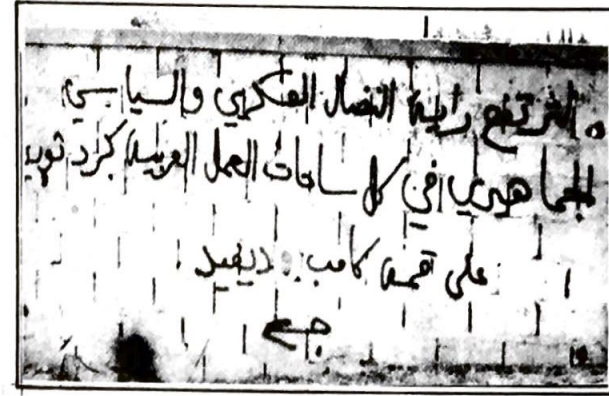 • لترتفع راية النضال الفكري والسياسي
الجماهيري في كل ساحات العمل العربية كرد ثوري
على قمة كامب ديفيد